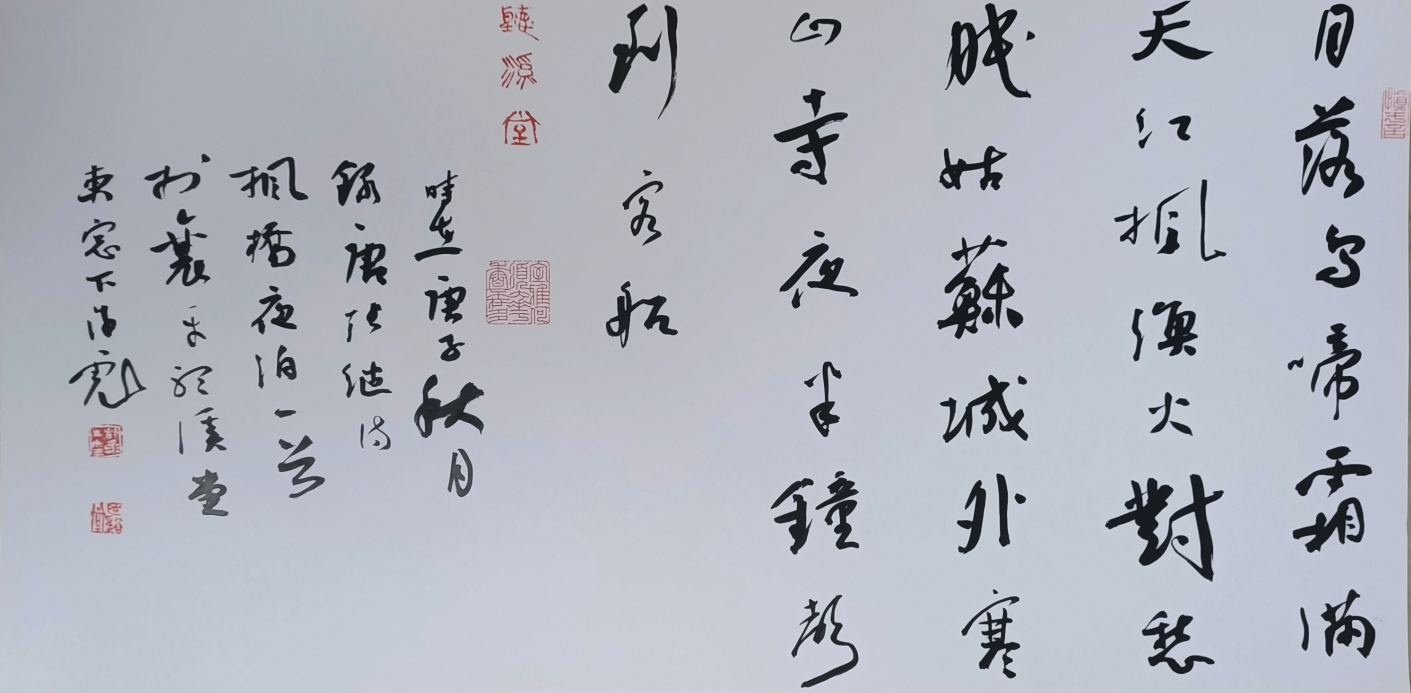 月落烏啼霜滿
天江楓漁火對愁
眠姑蘇城外寒
山寺夜半鐘聲
到客船
聽溪堂
時在庚子秋月
錄唐張繼詩
楓橋夜泊一首
於襄平聽溪堂
東窗下